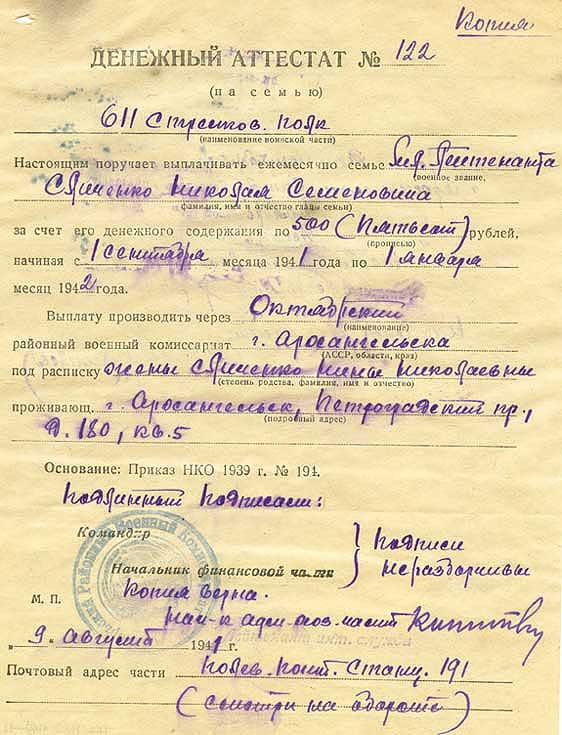 Копия
ДЕНЕЖНЫЙ АТТЕСТАТ № 122
(на семью)
611 Стрелков. полк
(наименование воинской части)
Настоящим поручает выплачивать ежемесячно семье мл. Лейтенанта
(военное звание,
Николая Семеновича
фамилия, имя и отчество главы семьи)
за счет его денежного содержания по 500 (Пятьсот) рублей,
(прописью)
начиная с 1 сентября месяца 1941 года по 1 января
месяц 1942 года.
Выплату производить через Октябрьский
(наименование)
районный военный комиссариат г. Архангельска
(АССР, области, края)
под расписку жены Нины Николаевны
(степень родства, фамилия, имя и отчество)
проживающ. г. Архангельск, Петроградский пр.,
(подробный адрес)
д. 180, кв. 5
Основание: Приказ НКО 1939 г. № 194.
Подлинный подписали:
Командир
Подписи
Начальник финансовой части
неразборчивы
М. П.
Копия верна.
Нач-к адм-хоз. части
„9„ август 1941 г.
Почтовый адрес части Полев. Почт. Станц. 191
(смотри на обороте)